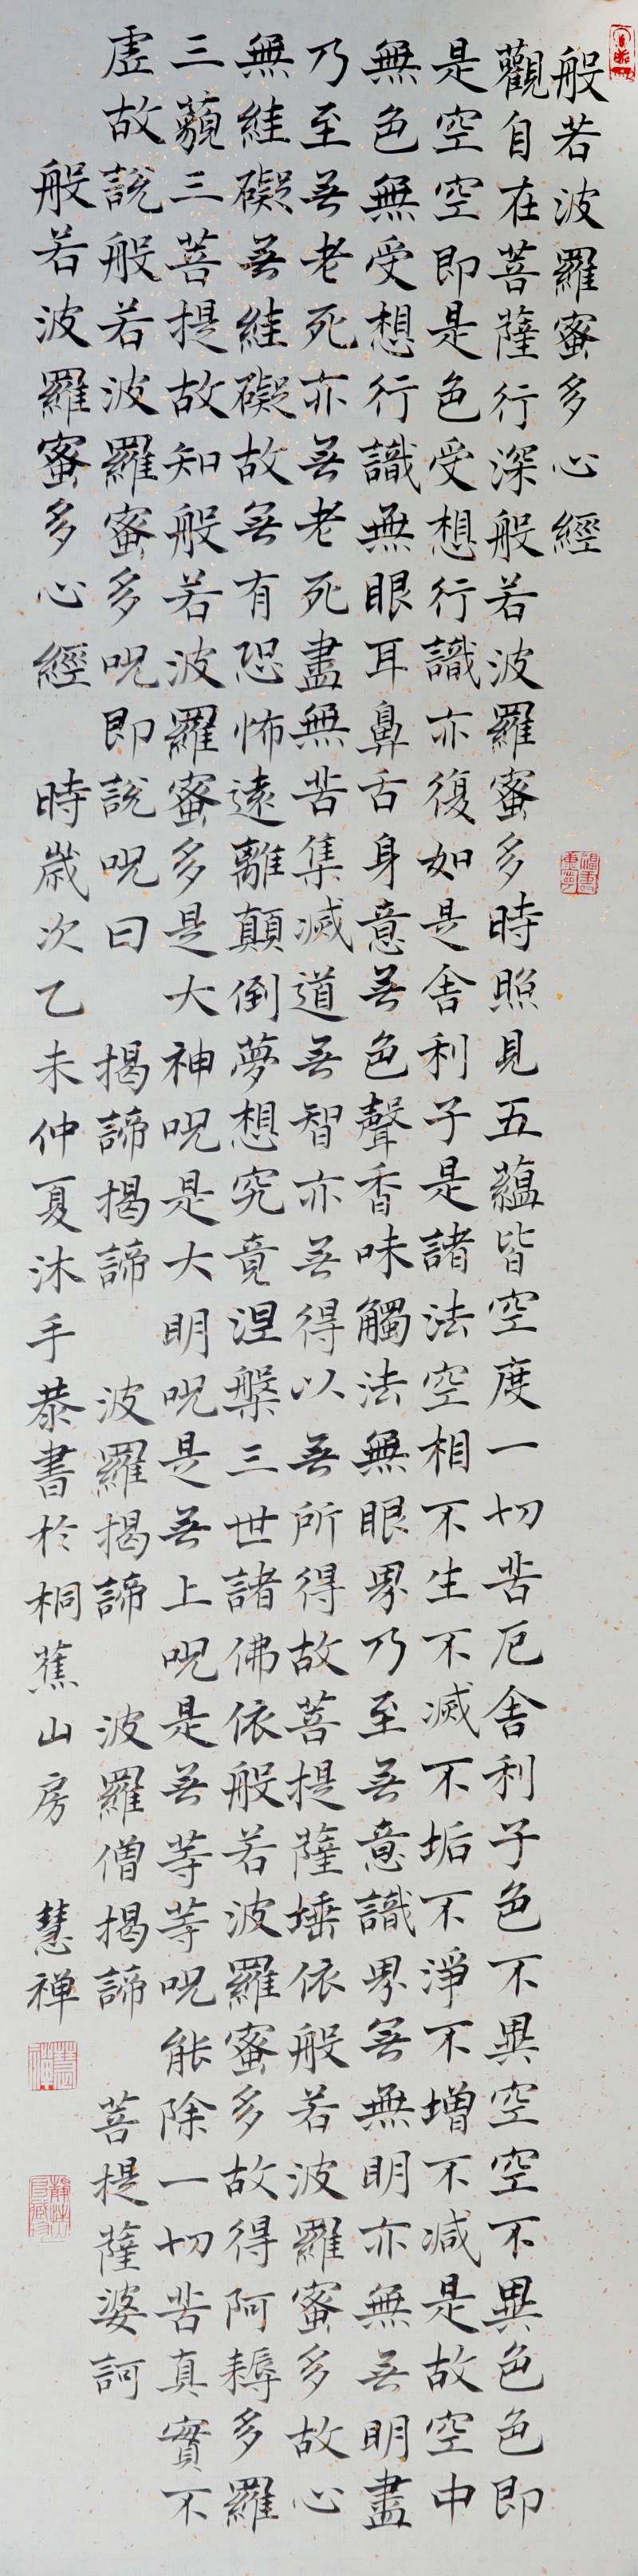 般若波羅蜜多心經
觀自在菩薩行深般若波羅蜜多時照見五蘊皆空度一切苦厄舍利子色不異空空不異色色即
是空空即是色受想行識亦復如是舍利子是諸法空相不生不滅不垢不淨不增不减是故空中
無色無受想行識無眼耳鼻舌身意无色聲香味觸法無眼界乃至无意識界无無明亦無无明盡
乃至无老死亦无老死盡無苦集滅道无智亦无得以无所得故菩提薩埵依般若波羅蜜多故心
無絓礙无絓礙故无有恐怖遠離顛倒夢想究竟涅槃三世諸佛依般若波羅蜜多故得阿耨多羅
三藐三菩提故知般若波羅蜜多是大神呪是大明呪是无上呪是无等等呪能除一切苦真實不
虛故說般若波羅蜜多呪即說呪曰 揭諦揭諦 波羅揭諦 波羅僧揭諦 菩提薩婆訶
般若波羅蜜多心經 時歲次乙未仲夏沐手恭書於桐蕉山房 慧禅